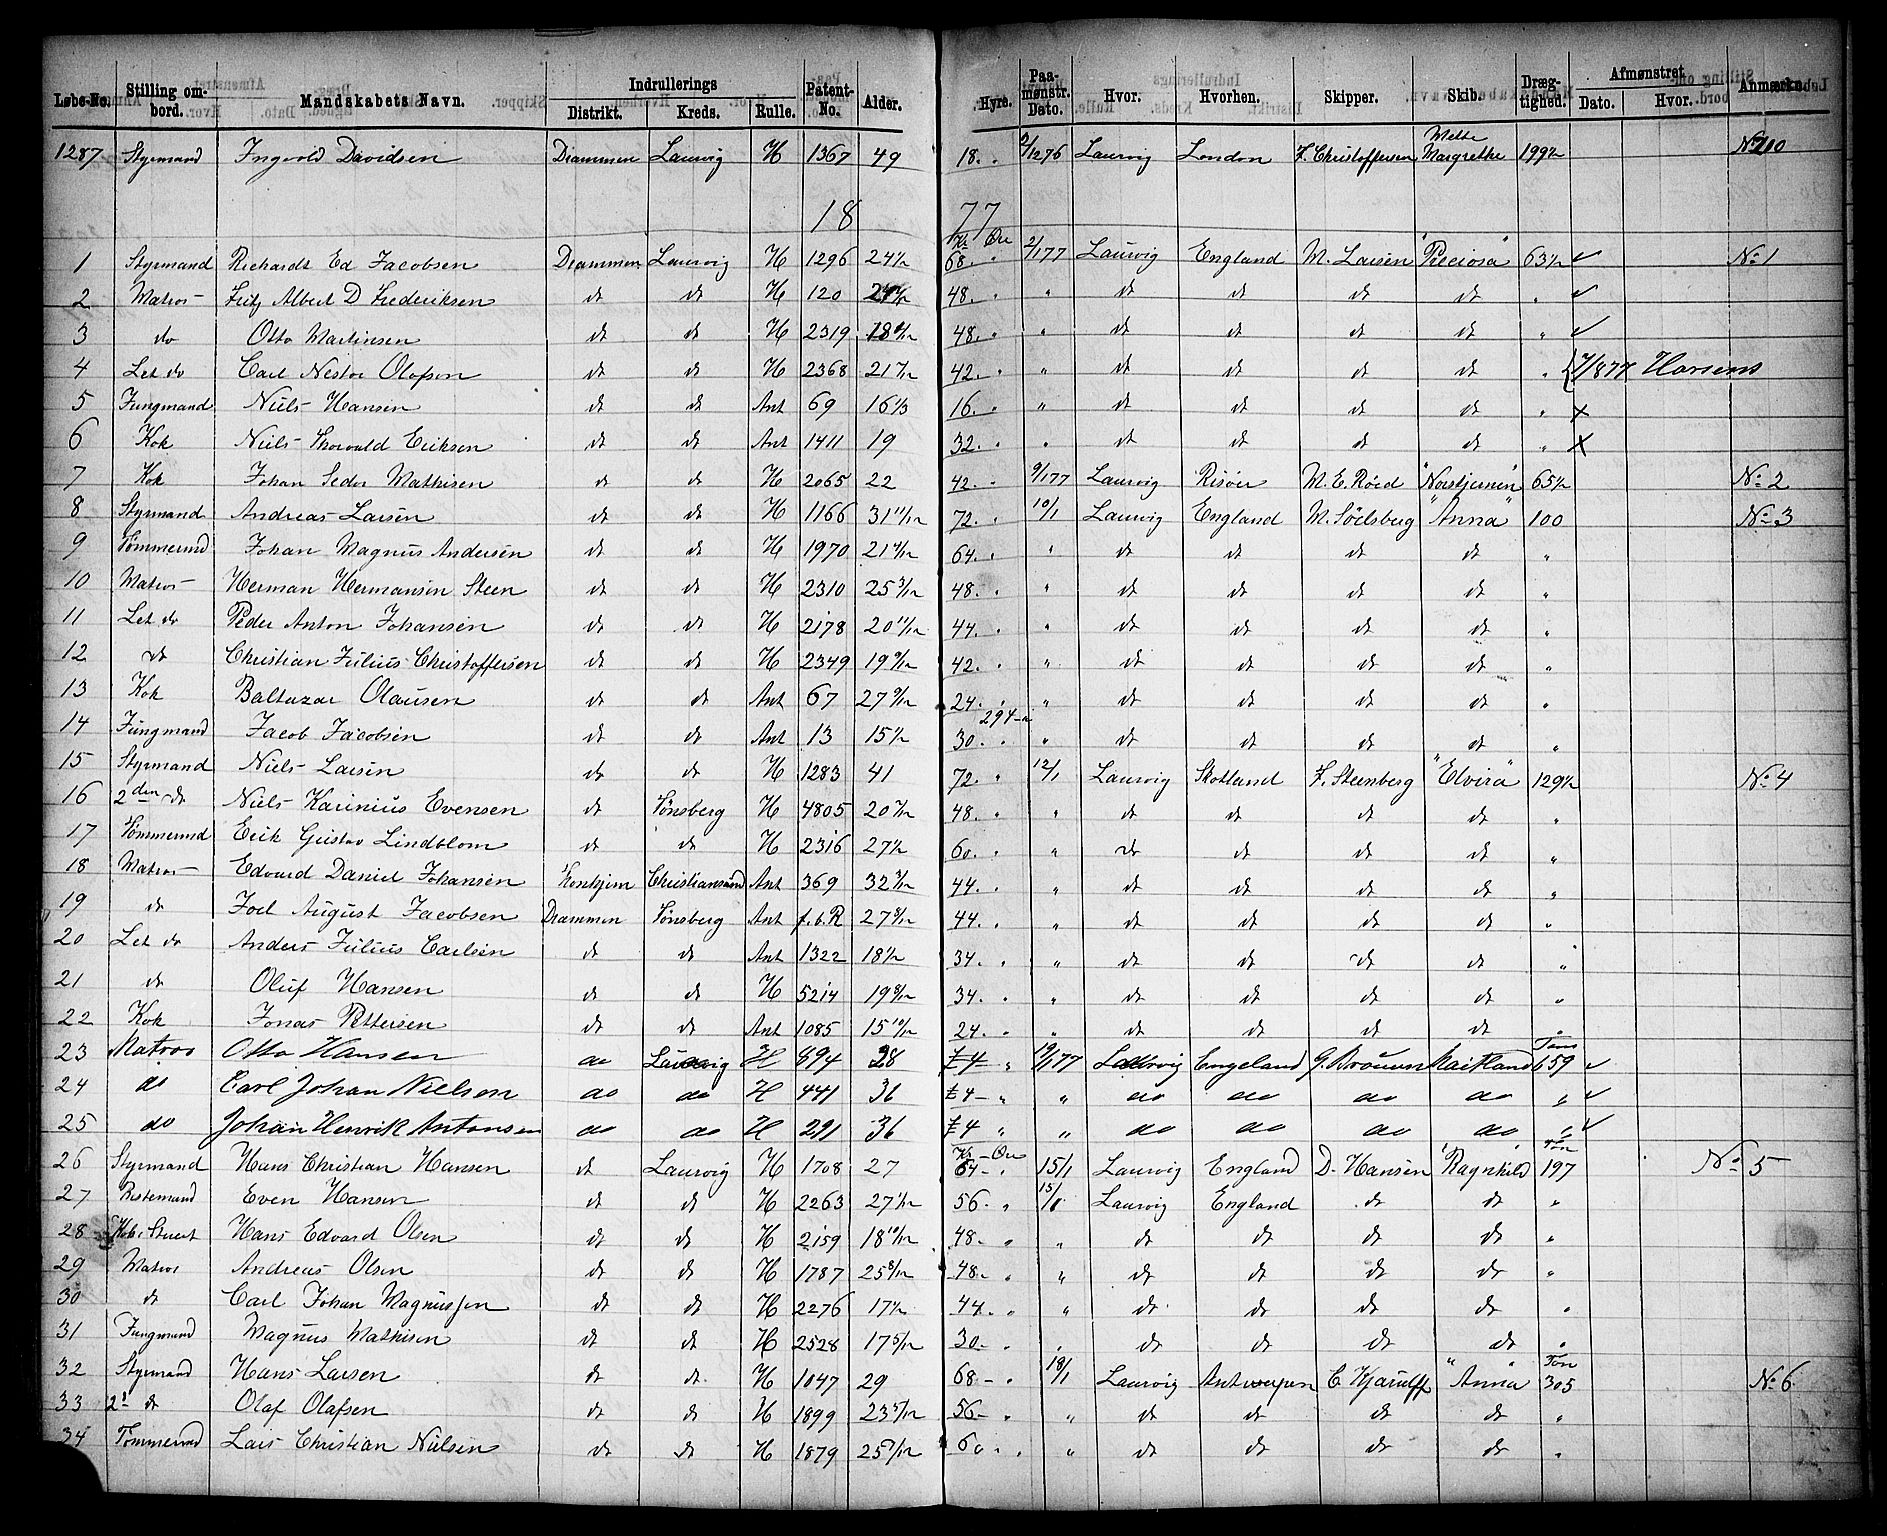 Løbe-No. Stilling ombord. Mandskabets Navn. Indrullerings Distrikt. Kreds. Rulle. Patent-No. Alder. Hyre. Paamønstr. Dato. Hvor. Hvorhen. Skipper. Skib. Drægtighed. Afmønstret Dato. Hvor. Anmærkn.
1287 Styrmand Ingvold Davidsen Drammen Laurvig H 1367 49 18. " 2/12 76 Laurvig London F. Christoffersen Mette Margrethe 199½ No 210
18 77
1 Styrmand Richardt Ed Jacobsen Drammen Laurvig H 1296 24½ Kr Øre 68. " 2/1 77 Laurvig England M. Larsen "Preciosa" 63½ ✓ No 1
2 Matros Fritz Albert D Frederiksen dt dt H 120 48. " " dt dt dt dt " ✓
3 do Otto Martinsen dt dt H 2319 18 48. " " dt dt dt dt " ✓
4 Let do Carl Nestor Olafsen dt dt H 2368 21 7/12 42. " " dt dt dt dt " 7/8 77 Horsens
5 Jungmand Niels Hansen dt dt Ant 69 16 1/3 16. " " dt dt dt dt " x
6 Kok Niels Thorvald Eriksen dt dt Ant 1411 19 32. " " dt dt dt dt " x
7 Kok Johan Sedor Mathisen dt dt H 2065 22 42. " 9/1 77 Laurvig Risöer M. E. Röed "Nordstjernen" 65½ No 2
8 Styrmand Andreas Larsen dt dt H 1166 31 11/12 72. " 10/1 Laurvig England M. Söelsberg "Anna" 100 No 3
9 Tömmermd Johan Magnus Andersen dt dt H 1970 21 4/12 64. " " dt dt dt dt "
10 Matros Herman Hermansen Steen dt dt H 2310 25 3/12 48. " " dt dt dt dt "
11 Let do Peder Anton Johansen dt dt H 2178 20 11/12 44. " " dt dt dt dt "
12 dt Christian Julius Christoffersen dt dt H 2349 19 9/12 42. " " dt dt dt dt "
13 Kok Baltazar Olausen dt dt Ant 67 27 9/12 24. " " dt dt dt dt "
294
14 Jungmand Jacob Jacobsen dt dt Ant 13 15½ 30. " " dt dt dt dt "
15 Styrmand Niels Larsen do dt H 1283 41 72. " 12/1 Laurvig Skotland F. Steenberg "Elvira" 129½ No 4
16 2den dt Niels Karinius Evensen dt Tönsberg H 4805 20 7/12 48. " " dt dt dt dt "
17 Tömmermd Erik Gustav Lindblom dt dt H 2316 27½ 60. " " dt dt dt dt "
18 Matros Edvard Daniel Johansen Tronhjem Christiansund Ant 369 32 3/12 44. " " dt dt dt dt "
19 dt Joel August Jacobsen Drammen Tönsberg Ant f. b. R 27 8/12 44. " " dt dt dt dt "
20 Let do Anders Julius Carlsen dt dt Ant 1322 18½ 34. " " dt dt dt dt "
21 dt Oluf Hansen dt dt H 5214 19 8/12 34. " " dt dt dt dt "
22 Kok Jonas Pettersen dt dt Ant 1085 15 10/12 24. " " dt dt dt dt "
23 Matros Otto Hansen do Laurvig H 894 28 £4 " 19/1 77 Laurvig Engeland G. Brouwn Maitland Tons 659 ✓
24 do Carl Johan Nielsen do do H 441 36 £4 - " " do do do do " ✓
25 do Johan Henrik Antonsen do do H 291 36 £4 " " do do do do " ✓
26 Styrmand Hans Christian Hansen dt Laurvig H 1708 27 Kr - Öre 64 - " 15/1 Laurvig England D. Hansen "Ragnhild" Ton 197 No 5
27 Bestemand Even Hansen dt dt H 2263 27 1/12 56. " 15/1 Laurvig England dt dt "
28 Kok & Stuert Hans Edvard Olsen dt dt H 2159 18 10/12 48. " " dt dt dt dt "
29 Matros Andreas Olsen dt dt H 1787 25 8/12 48. " " dt dt dt dt "
30 dt Carl Johan Magnussen dt dt H 2276 17½ 44. " " dt dt dt dt "
31 Jungmand Magnus Mathisen dt dt H 2528 17 5/12 30. " dt dt dt dt "
32 Styrmand Hans Larsen dt dt H 1047 29 68 - " 18/1 Laurvig Antwerpen C Kjerulff "Anna" Ton 305 No 6
33 2d dt Olaf Olafsen dt dt H 1899 23 5/12 56 - " " dt dt dt dt "
34 Tömmermd Lars Christian Nielsen dt dt H 1879 25 7/12 60. " " dt dt dt dt "